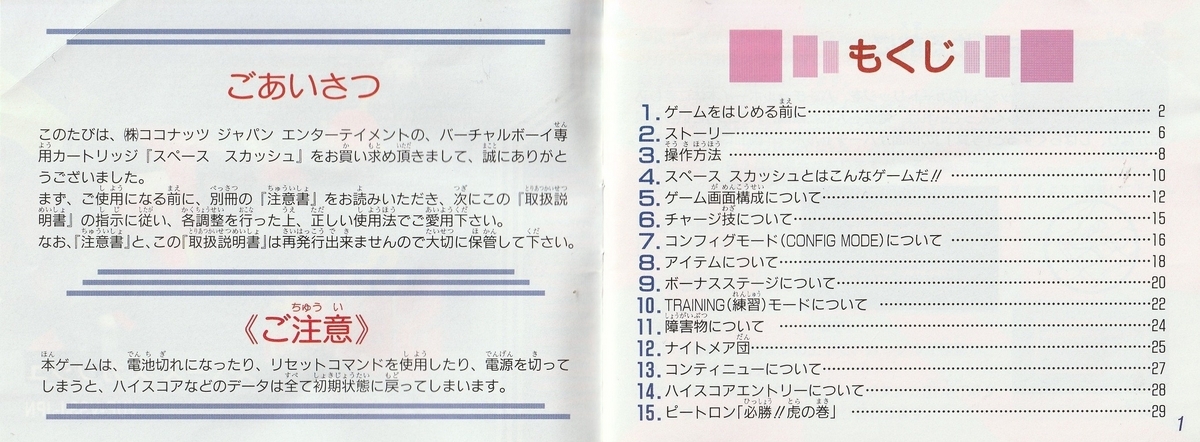 ごあいさつ
このたびは、㈱ココナッツ ジャパン エンターテイメントの、バーチャルボーイ専
用カートリッジ『スペース スカッシュ』をお買い求め頂きまして、誠にありがと
うございました。
まず、ご使用になる前に、別冊の『注意書』をお読みいただき、次にこの『取扱説
明書』の指示に従い、各調整を行った上、正しい使用法でご愛用下さい。
なお、『注意書』と、この『取扱説明書』は再発行出来ませんので大切に保管して下さい。
《ご注意》
本ゲームは、電池切れになったり、リセットコマンドを使用したり、電源を切って
しまうと、ハイスコアなどのデータは全て初期状態に戻ってしまいます。
もくじ
1. ゲームをはじめる前に 2
2. ストーリー 6
3. 操作方法 8
4. スペース スカッシュとはこんなゲームだ!! 10
5. ゲーム画面構成について 12
6. チャージ技について 15
7. コンフィグモード(CONFIG MODE)について 16
8. アイテムについて 18
9. ボーナスステージについて 20
10. TRAINING(練習)モードについて 22
11. 障害物について 24
12. ナイトメア団 25
13. コンティニューについて 27
14. ハイスコアエントリーについて 28
15. ビートロン「必勝!!虎の巻」 29
1